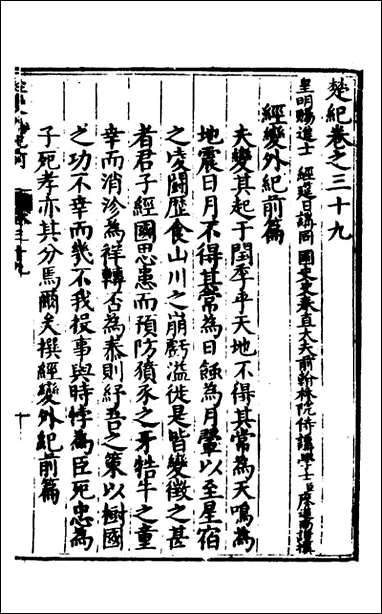 楚紀卷之三十九
皇明賜進士 經筵日講同 國史吏奉直大夫前翰林院侍讀學士臣廖道南謹撰
經變外紀前篇
夫變其起于閏季乎天地不得其常為天鳴為
地震日月不得其常為日蝕為月暈以至星宿
之凌鬬歷食山川之崩虧溢徙是皆變徵之甚
者君子經國思患而預防猶豕之牙牿牛之童
幸而消沴為祥轉否為泰則紓吾之策以樹國
之功不幸而幾不我投事與時悖為臣死忠為
子死孝亦其分焉爾矣撰經變外紀前篇
十